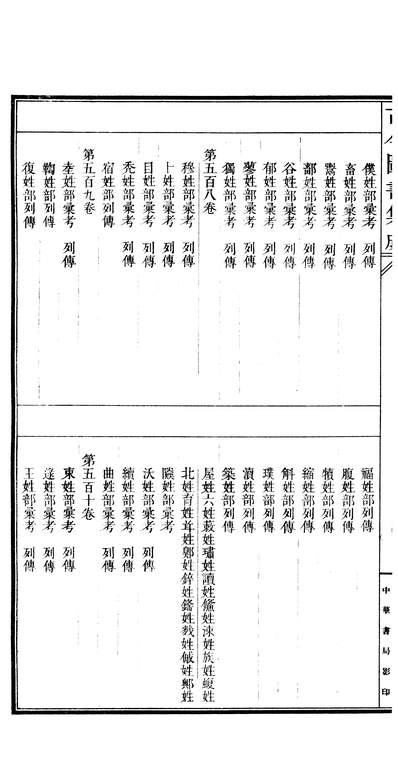 僕姓部彙考 列傳
畜姓部彙考 列傳
鬻姓部彙考 列傳
鄐姓部彙考 列傳
谷姓部彙考 列傳
郁姓部彙考 列傳
蓼姓部彙考 列傳
獨姓部彙考 列傳
第五百八卷
穆姓部彙考 列傳
卜姓部彙考 列傳
目姓部彙考 列傳
禿姓部彙考 列傳
宿姓部列傳
第五百九卷
姓部彙考 列傳
鞠姓部列傳
復姓部列傳
福姓部列傳
腹姓部列傳
犢姓部列傳
縮姓部列傳
斛姓部列傳
璞姓部列傳
瀆姓部列傳
築姓部列傳
屋姓六姓 姓 姓讀姓 姓涑姓族姓 姓
北姓育姓 姓 姓 姓 姓 姓 姓 姓
姓部彙考
沃姓部彙考 列傳
續姓部彙考 列傳
曲姓部彙考 列傳
第五百十卷
束姓部彙考 列傳
逯姓部彙考 列傳
玉姓部彙考 列傳
圖書集
中華書局影印